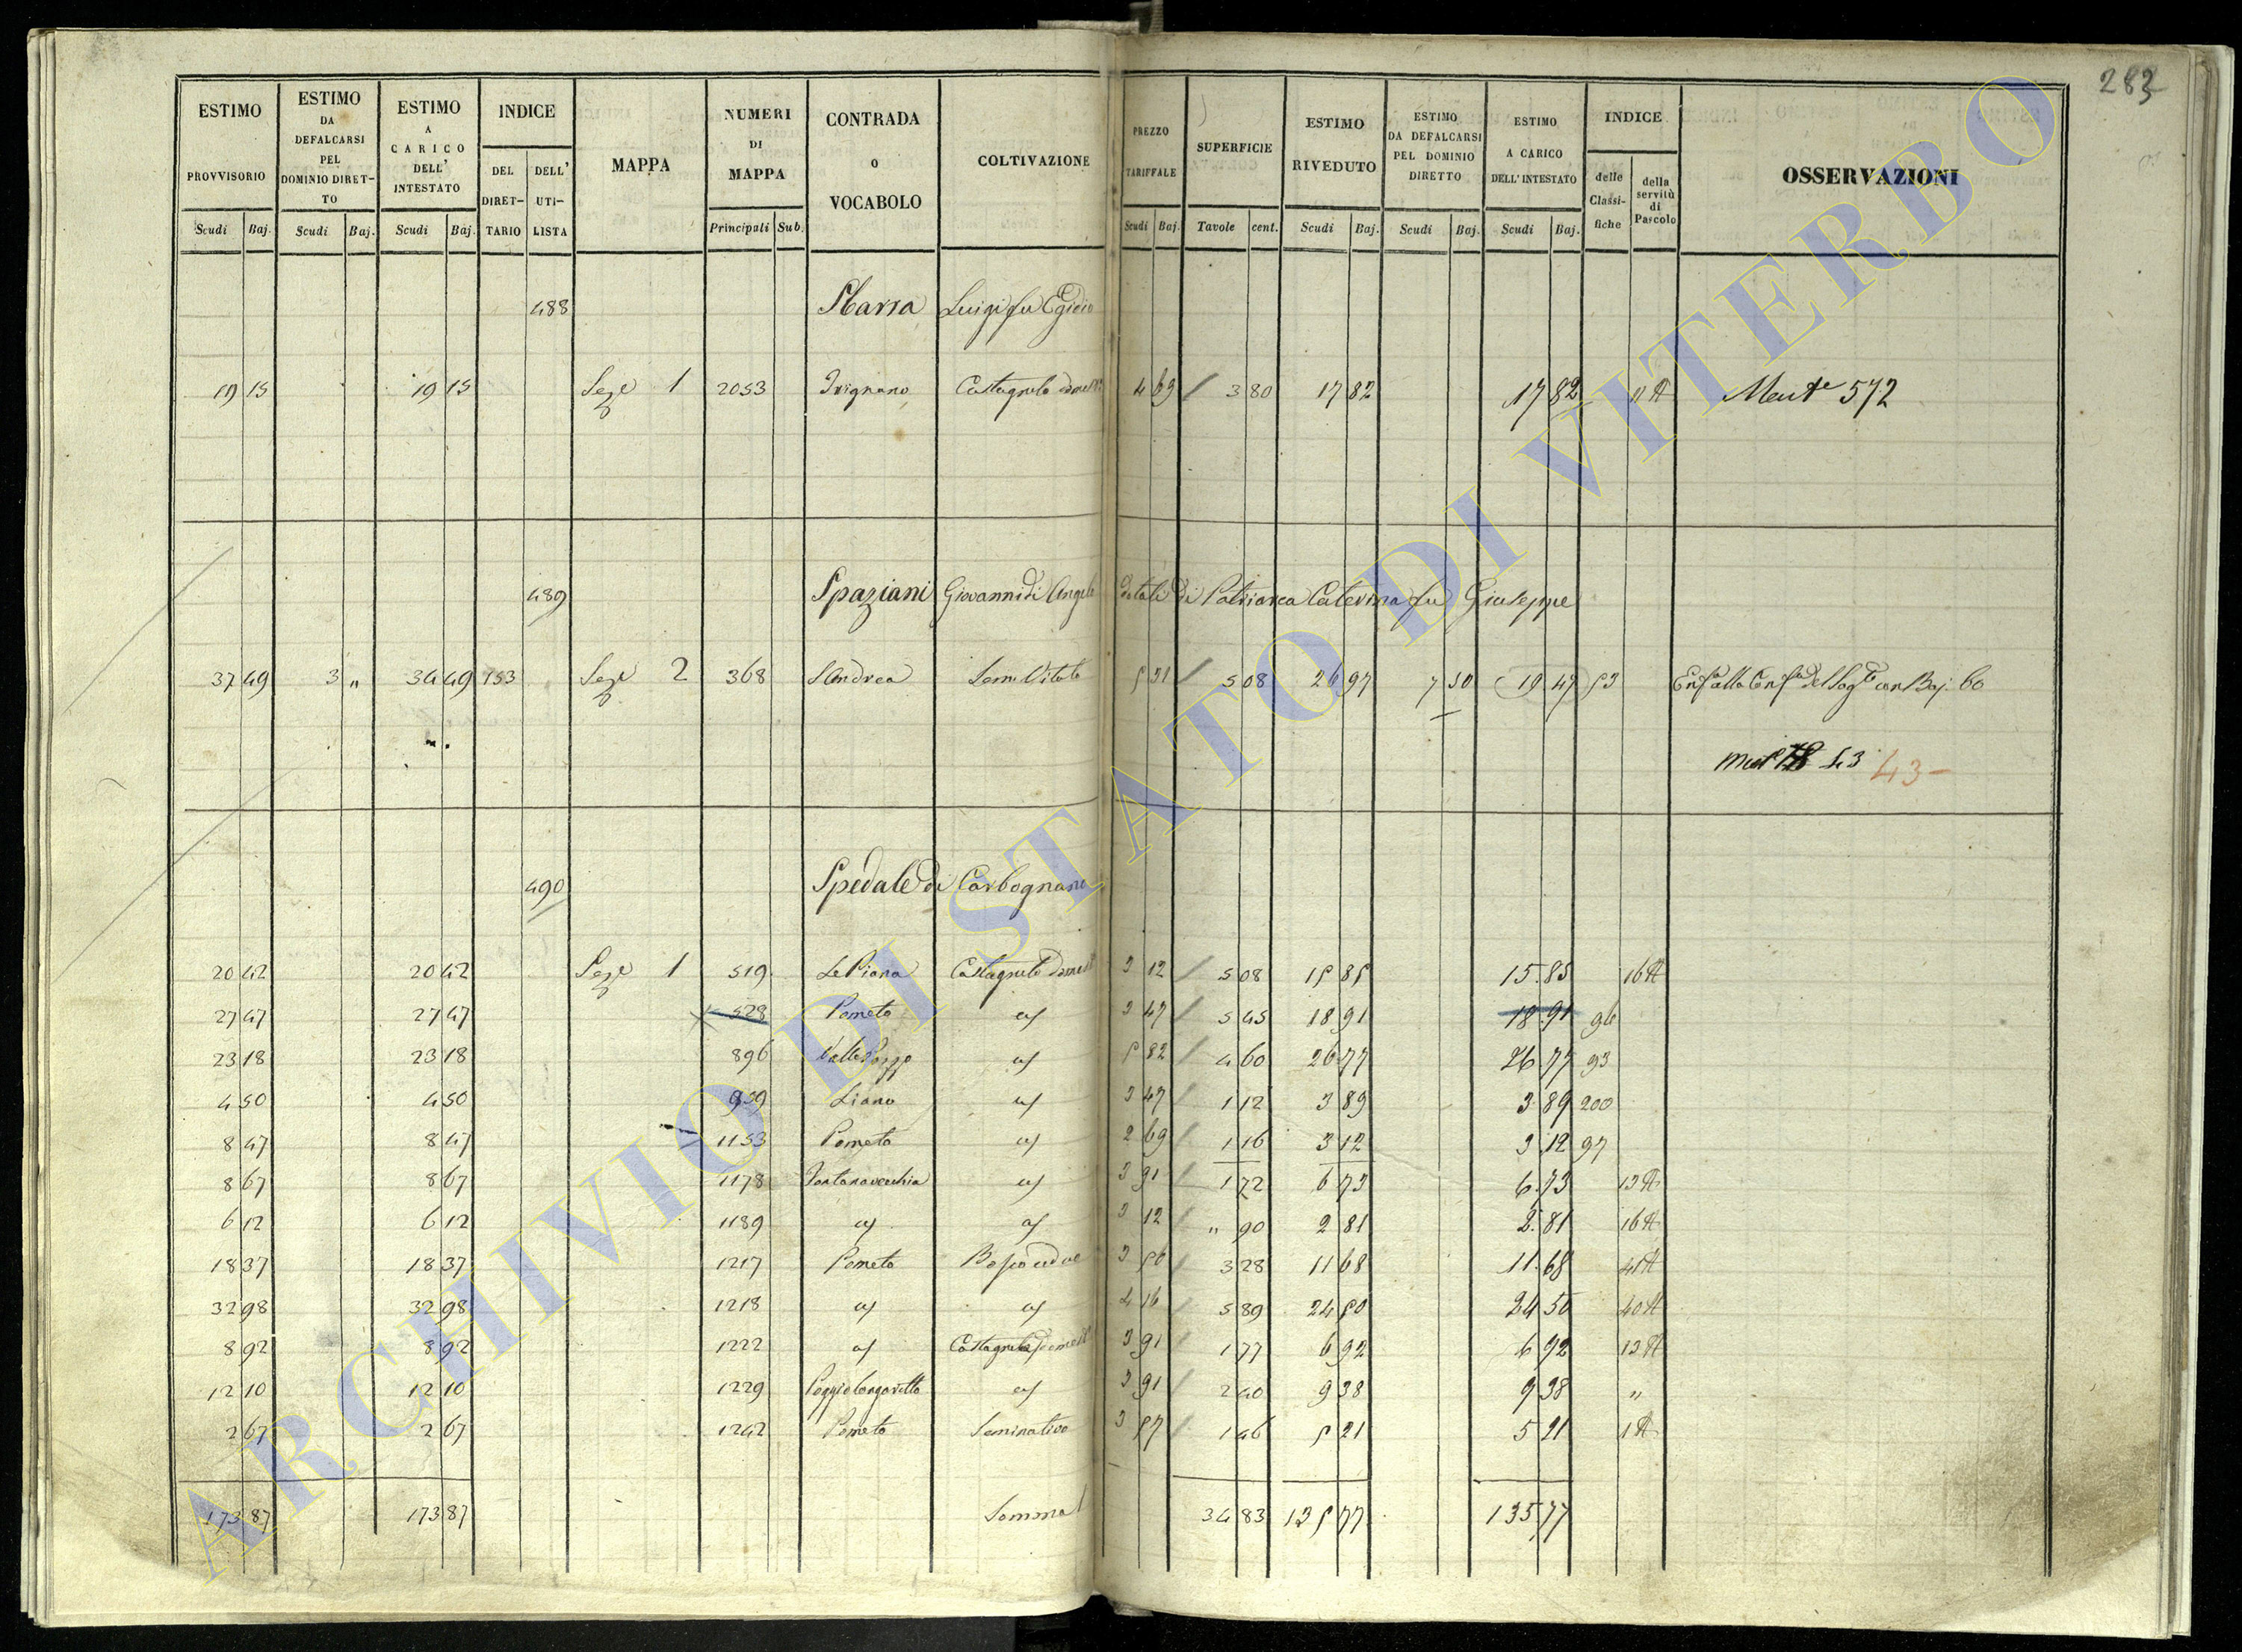 283
ESTIMO PROVVISORIO Scudi Baj. ESTIMO DA DEFALCARSI PEL DOMINIO DIRET-TO Scudi Baj. ESTIMO A CARICO DELL' INTESTATO Scudi Baj. INDICE DEL DIRET-TARIO DELL' UTI-LISTA MAPPA NUMERI DI MAPPA Principali Sub. CONTRADA o VOCABOLO COLTIVAZIONE PREZZO TARIFFALE Scudi Baj. SUPERFICIE Tavole cent. ESTIMO RIVEDUTO Scudi Baj. ESTIMO DA DEFALCARSI PEL DOMINIO DIRETTO Scudi Baj. ESTIMO A CARICO DELL' INTESTATO Scudi Baj. INDICE delle Classi-fiche della servitù di Pascolo OSSERVAZIONI
488 Sbarra Luigi fu Egidio
19 15 19 15 Seze 1 2053 Ivignano Castagneto 4 69 3 80 17 82 17 82 11 A 572
489 Spaziani Giovanni di Angelo dotali di Patriarca Caterina fu Giuseppe
37 49 3 " 34 49 153 Seze 2 368 S Andrea Sem. Vitato 5 31 5 08 26 97 7 50 19 47 53 con Baj. 60
43 43 -
490 Spedale di Carbognano
20 42 20 42 Seze 1 519 Le Piana Castagneto domest 3 12 5 08 15 85 15 85 16 A
27 47 27 47 528 Pometo 3 47 5 45 18 91 18 91 96
23 18 23 18 896 5 82 4 60 26 77 26 77 93
4 50 4 50 959 Liano 3 47 1 12 3 89 3 89 200
8 47 8 47 1153 Pometo 2 69 1 16 3 12 3 12 97
8 67 8 67 1178 Fontanavecchia 3 91 1 72 6 73 6 73 13 A
6 12 6 12 1189 3 12 " 90 2 81 2 81 16 A
18 37 18 37 1217 Pometo Bosco ceduo 3 56 3 28 11 68 11 68 41 A
32 98 32 98 1218 4 16 5 89 24 50 24 50 40 A
8 92 8 92 1222 Castagneto domest 3 91 1 77 6 92 6 92 13 A
12 10 12 10 1229 3 91 2 40 9 38 9 38 "
2 67 2 67 1242 Pometo Seminativo 3 57 1 46 5 21 5 21 1 A
173 87 173 87 Somma 34 83 135 77 135 77
ARCHIVIO DI STATO DI VITERBO